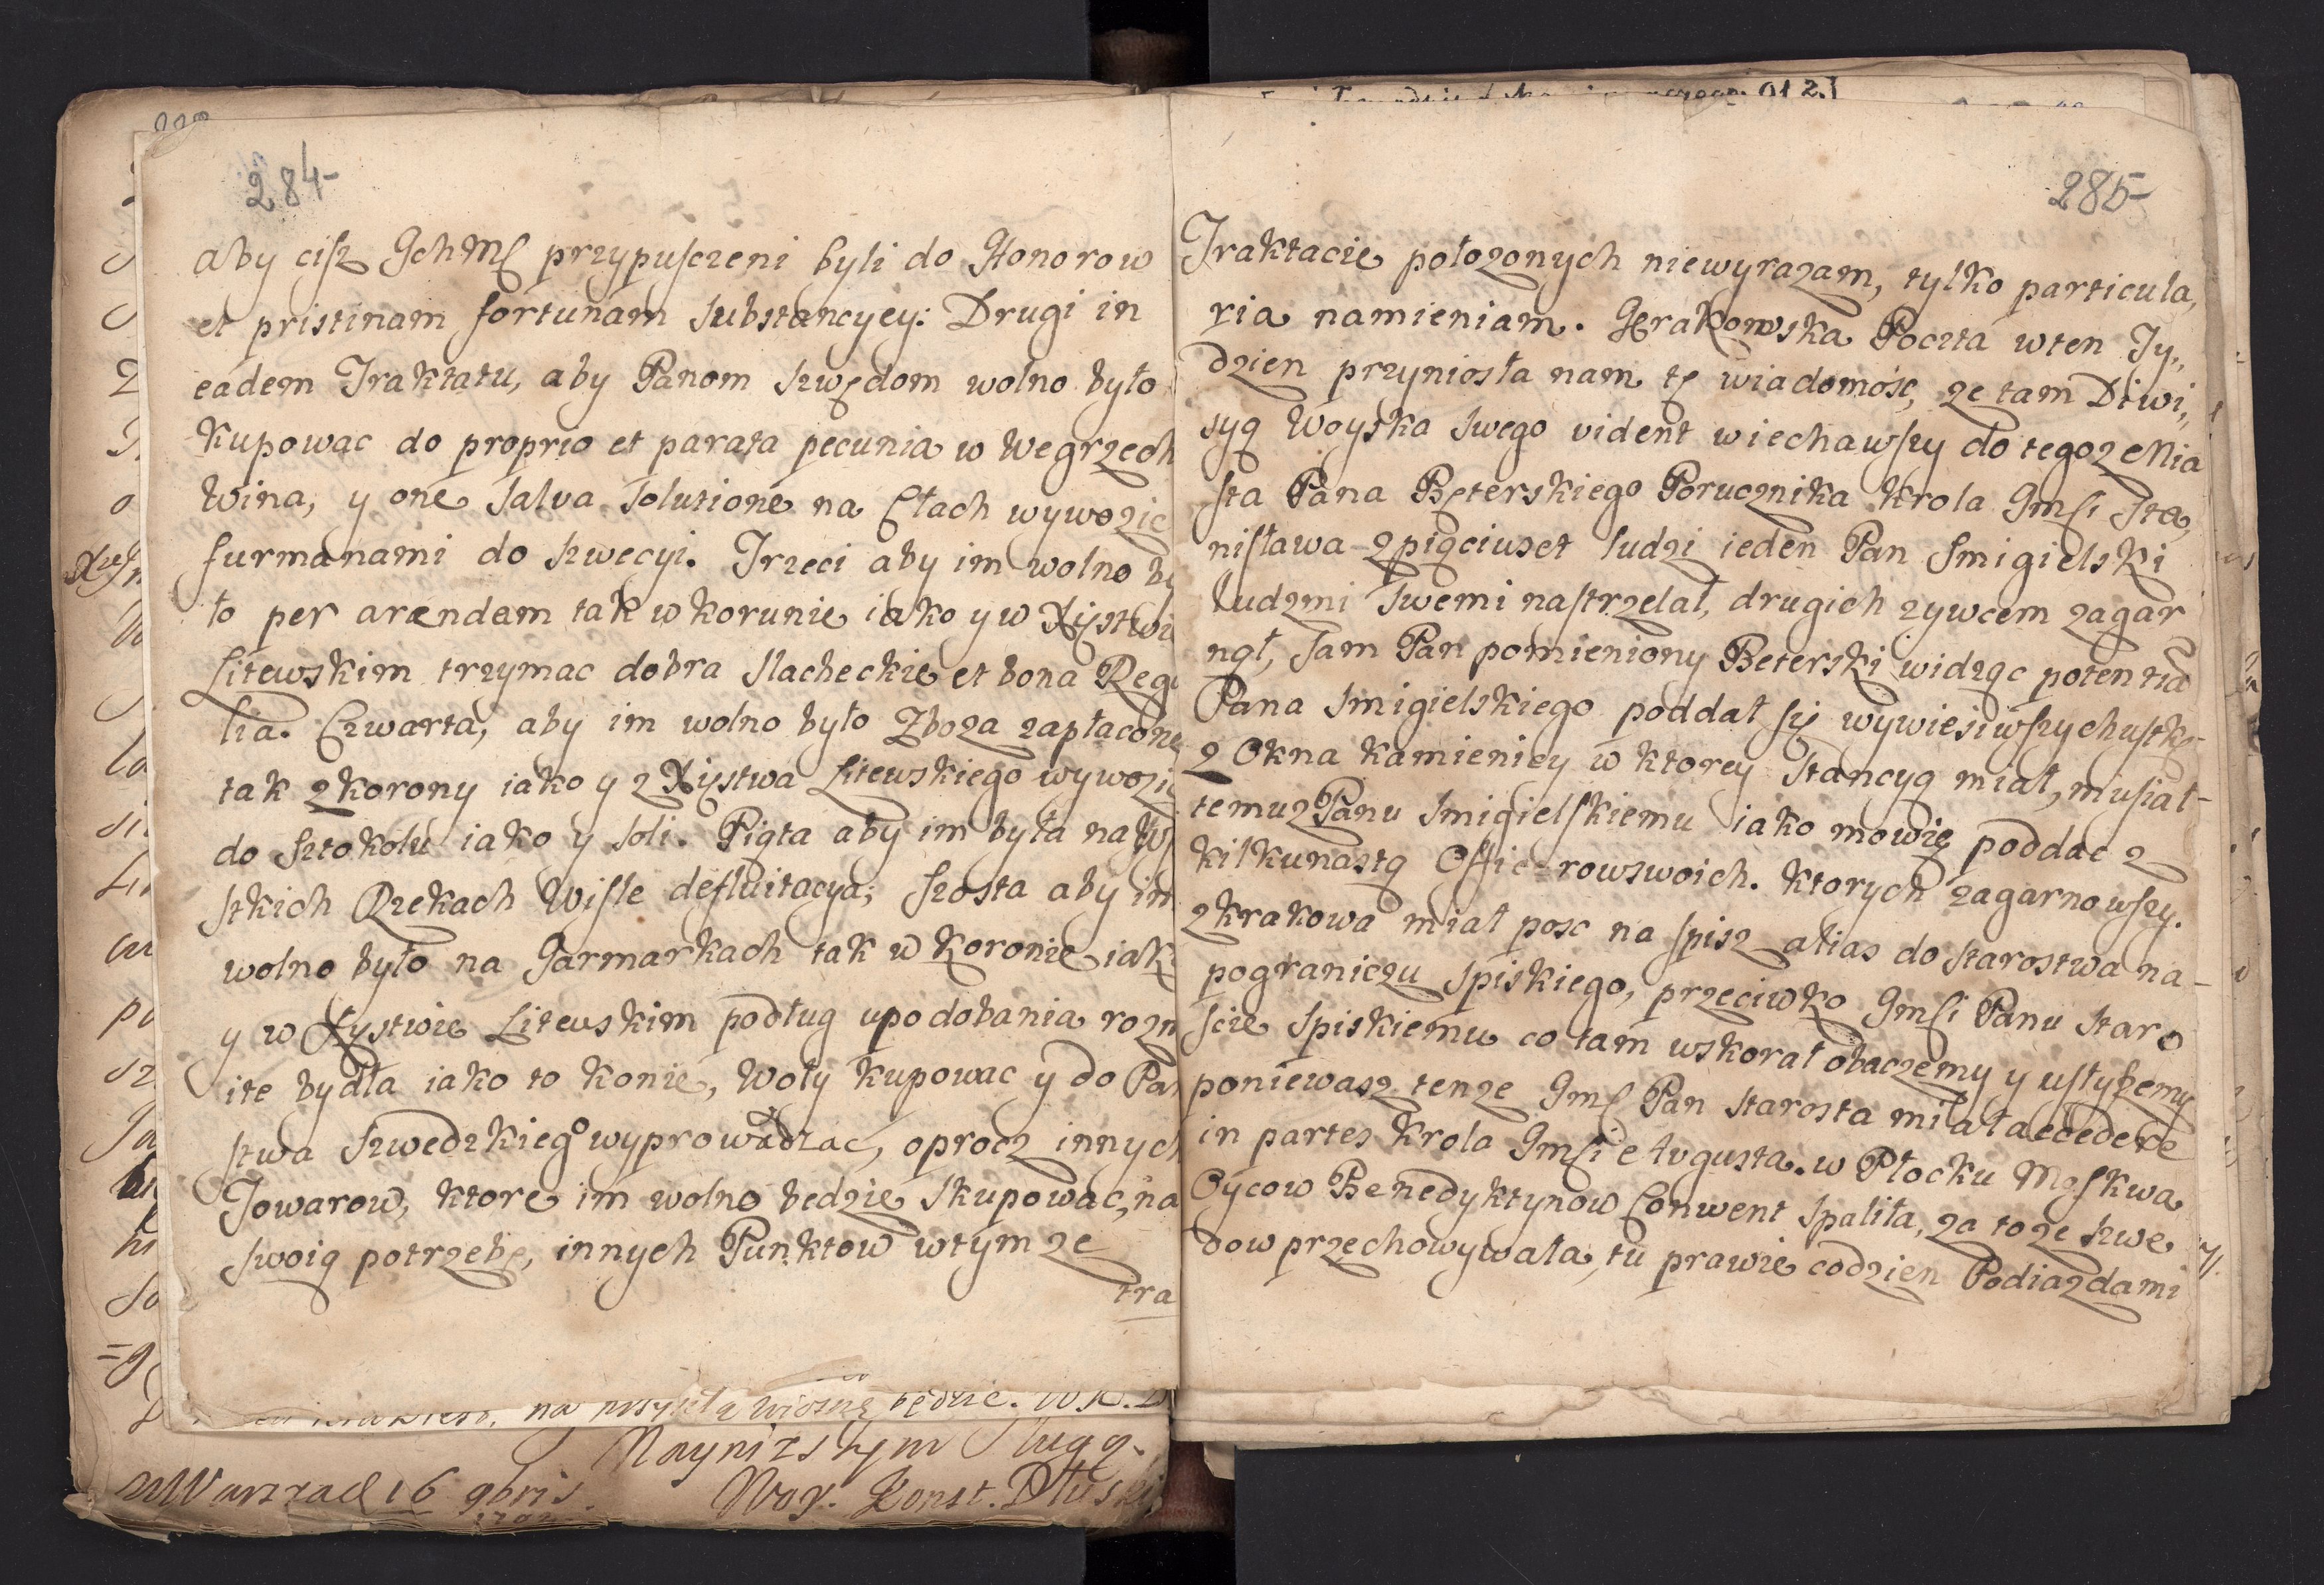 284
aby cisz Ichmſ przypuſczeni byli do Honorow
et pristinam fortunam substancyey: Drugi in
eadem Traktatu, aby Panom Szwędom wolno było
Kupowac do proprio et parata pecunia w Wegrzech
Wina, y one Salva Solutione na Cłach wywozic
furmanami do Szwecyi. Trzeci aby im wolno by
to per arendam tak w korunie iako y w Xięstwi
Litewskim trzymac dobra slacheckie et bona Rega
lia. Czwarta, aby im wolno było Zboza zapłacone
tak z korony iako y z Xięstwa Litewskiego wywozic
do Sztokolu iako y soli. Piąta aby im była na Wſ
stkich Rzekach Wiſle defluitacya; szosta aby im
wolno było na Jarmarkach tak w Koronie iak
y w Xystwie Litewskim podług upodobania rozm
ite bydła iako to konie, Woły kupowac y do Pan
stwa Szwedzkiego wyprowadzac, oprocz innych
Towarow, ktore im wolno bedzie skupowac, na
swoią potrzebę, innych Punktow w tym ze
tra
Nayniższym Sługą.
z Warszad 16 9bris. Woy. Konst. Dłuski
285
Traktacie połozonych niewyrazam, tylko particula,
ria namieniam. Krakowska Poczta w ten Ty,,
dzien przyniosła nam tę wiadomosc, ze tam Diwi,,
syą Woyska swego vident wiechawſzy do tegoz Mia
sta Pana Beterskiego Porucznika Krola Jmſi Sta,
niſława z pięciuset ludzi ieden Pan Smigielski
ludzmi swemi naſtrzelał, drugich zywcem zagar
nął, sam Pan pomieniony Beterski widząc potentia
Pana Smigielskiego poddał się wywiesiwſzy chuſtkę
z Okna Kamienicy w ktorey stancyą miał, muſiał
temuz Panu Smigielſkiemu iako mowię poddac z
kilkunastą Officerow swoich. ktorych zagarnowſzy.
z krakowa miał posc na spisz alias do starostwa na
pograniczu Spiskiego, przeciwko Jmſi Panu Staro
scie Spiskiemu co tam wskorał obaczemy y uſłyszemy
poniewasz tenze Jmſ Pan Starosta miał accedere
in partes Krola Jmſi Augusta. w Płocku Moſkwa
Oycow Benedyktynow Conwent spaliła, za to ze Szwe
dow przechowywała, tu prawie codzien Podiazdami